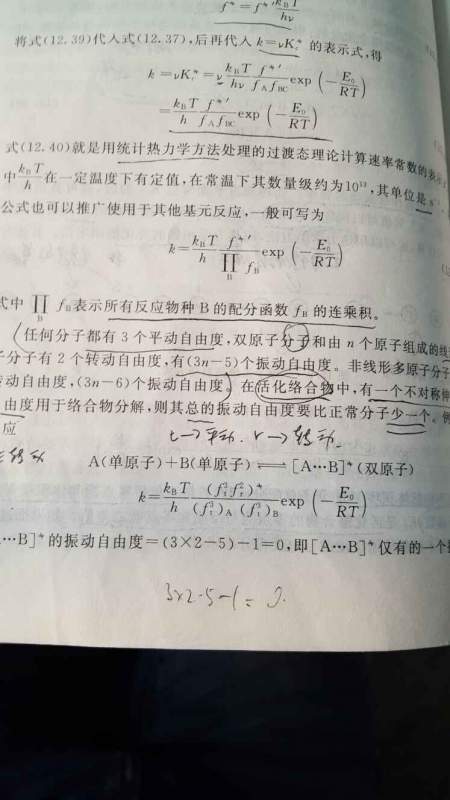 f^≠ = f^≠' k_BT/hν
将式(12.39)代入式(12.37),后再代入 k=νK_c^≠ 的表示式,得
k = νK_c^≠ = ν k_BT/hν f^≠'/f_A f_BC exp(-E_0/RT)
= k_BT/h f^≠'/f_A f_BC exp(-E_0/RT)
式(12.40)就是用统计热力学方法处理的过渡态理论计算速率常数的表
中 k_BT/h 在一定温度下有定值,在常温下其数量级约为10^13,其单位是 s
公式也可以推广使用于其他基元反应,一般可写为
k = k_BT/h f^≠'/∏_B f_B exp(-E_0/RT)
式中 ∏_B f_B表示所有反应物种 B 的配分函数 f_B 的连乘积。
任何分子都有 3 个平动自由度,双原子分子和由 n 个原子组成的线
子分子有 2 个转动自由度,有(3n-5)个振动自由度。非线形多原子分子
动自由度,(3n-6)个振动自由度。在活化络合物中,有一个不对称伸
由度用于络合物分解,则其总的振动自由度要比正常分子少一个。例
应
t→平动. r→转动.
转动
A(单原子)+B(单原子) ⇌ [A···B]^≠(双原子)
k = k_BT/h (f_t^3 f_r^2)^≠/(f_t^3)_A (f_t^3)_B exp(-E_0/RT)
···B]^≠的振动自由度=(3×2-5)-1=0,即[A···B]^≠仅有的一个
3×2-5-1=0.